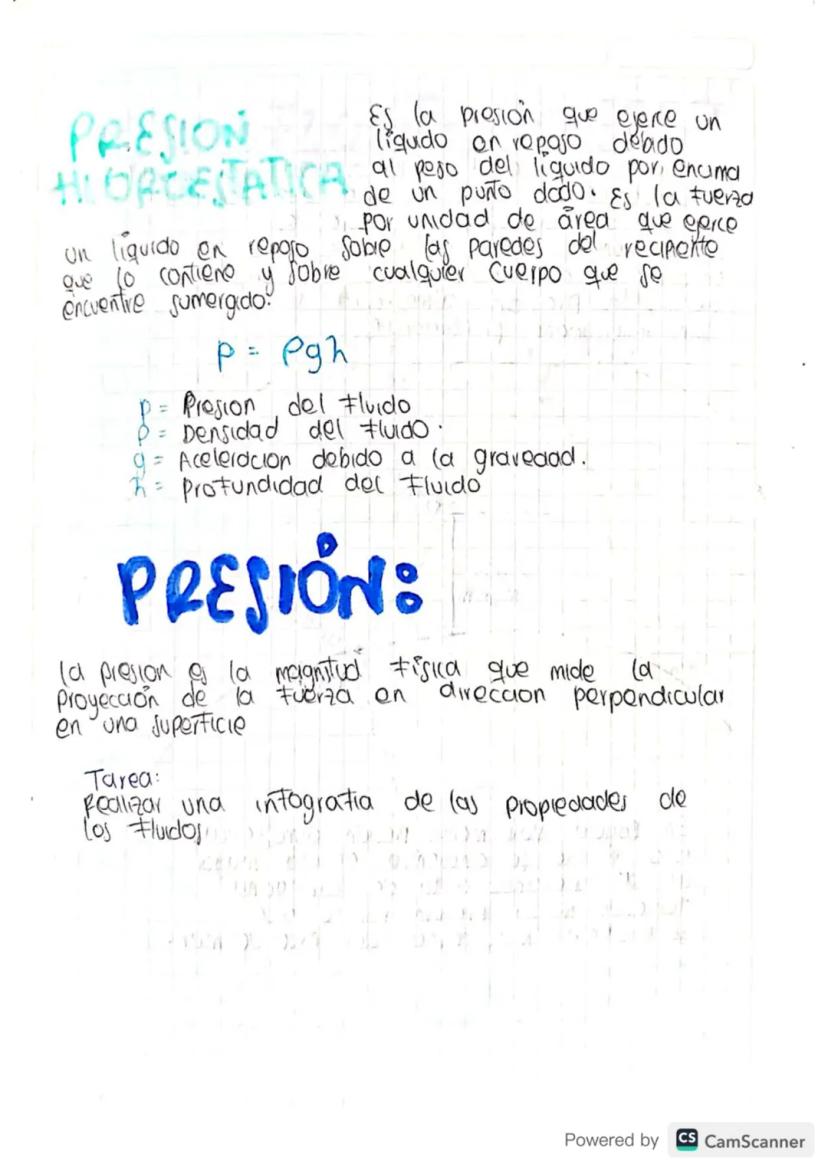 PRESION
HIDROESTATICA
Es la presión que ejerce un
líquido en reposo debido
al peso del líquido por encima
de un punto dado. Es la fuerza
por unidad de área que ejerce
un líquido en reposo sobre las paredes del recipiente
que lo contiene y sobre cualquier cuerpo que se
encuentre sumergido.
p = ρgh
p = Presion del fluido
ρ = Densidad del fluido.
g = Aceleracion debido a la gravedad.
h = Profundidad del fluido
PRESIÓN:
la presion es la magnitud física que mide la
proyección de la fuerza en direccion perpendicular
en una superficie
Tarea:
Realizar una infografia de las propiedades de
los fluidos
Powered by CS CamScanner